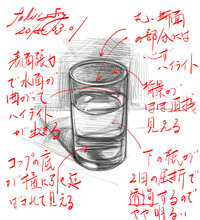 丸い断面
の部分には
必ず
ハイライト
表面張力
で水面の
曲がって
ハイライト
が出来る
背景の
ほぼ直接
見える
コップの底
が横に引き延
ばされて見える
下の紙が
2回の屈折で
透過するので
やや明るい